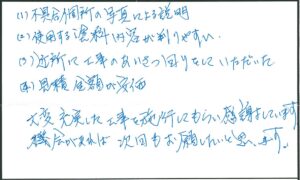 (1) 不具合個所の写真による説明
(2) 使用する塗料内容が判りやすい
(3) 近所に工事のあいさつ回りをしていただいた
(4) 見積金額が安価
大変充実した工事を施行してもらい感謝しています
機会があれば次回もお願いしたいと思います。